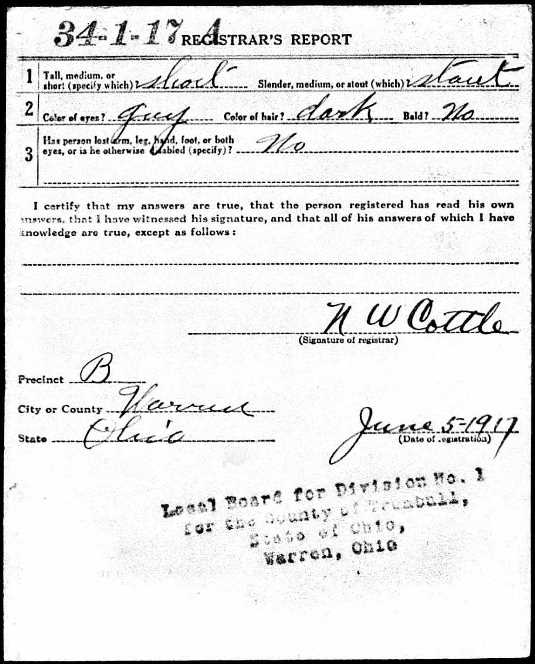 34-1-17 A REGISTRAR'S REPORT
1 Tall, medium, or short (specify which)? short Slender, medium, or stout (which)? stout
2 Color of eyes? grey Color of hair? dark Bald? No
3 Has person lost arm, leg, hand, foot, or both
eyes, or is he otherwise disabled (specify)? No
I certify that my answers are true, that the person registered has read his own
answers, that I have witnessed his signature, and that all of his answers of which I have
knowledge are true, except as follows:
N W Cottle
(Signature of registrar)
Precinct B
City or County Warren
State Ohio
June 5-1917
(Date of registration)
Local Board for Division No. 1
for the County of Trumbull,
State of Ohio,
Warren, Ohio